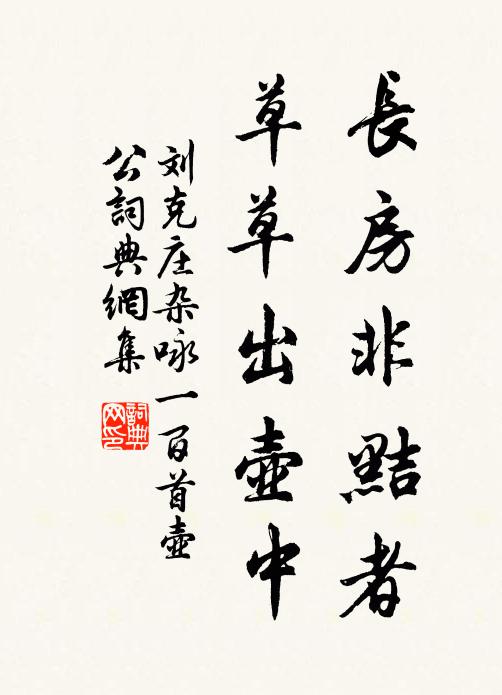 長房非黠者
草草出壺中
刘克庄杂咏一百首壺
公詞典網集
詞典网印